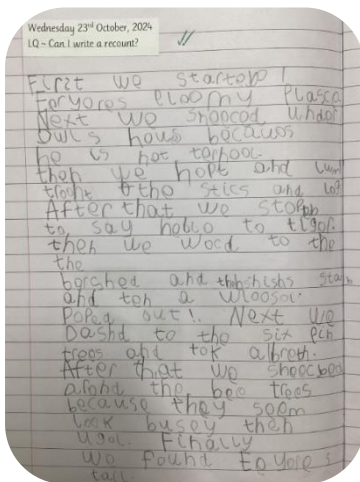 Wednesday 23rd October, 2024
LQ – Can I write a recount?
First we startep !
Eeryores gloomy Plasca
Next we sneeced under
owls hous becaus
he is not
then we hopt and
the stics and log
After that we stopp
to say hello to tigor.
then we to the
the
and
and ten a
Poped out!. Next we
Dashd to the six pin
trees and tok a breth.
After that we
arond the bee trees
because they seem
look busey then
Finally
we found Eoyore s
tail.